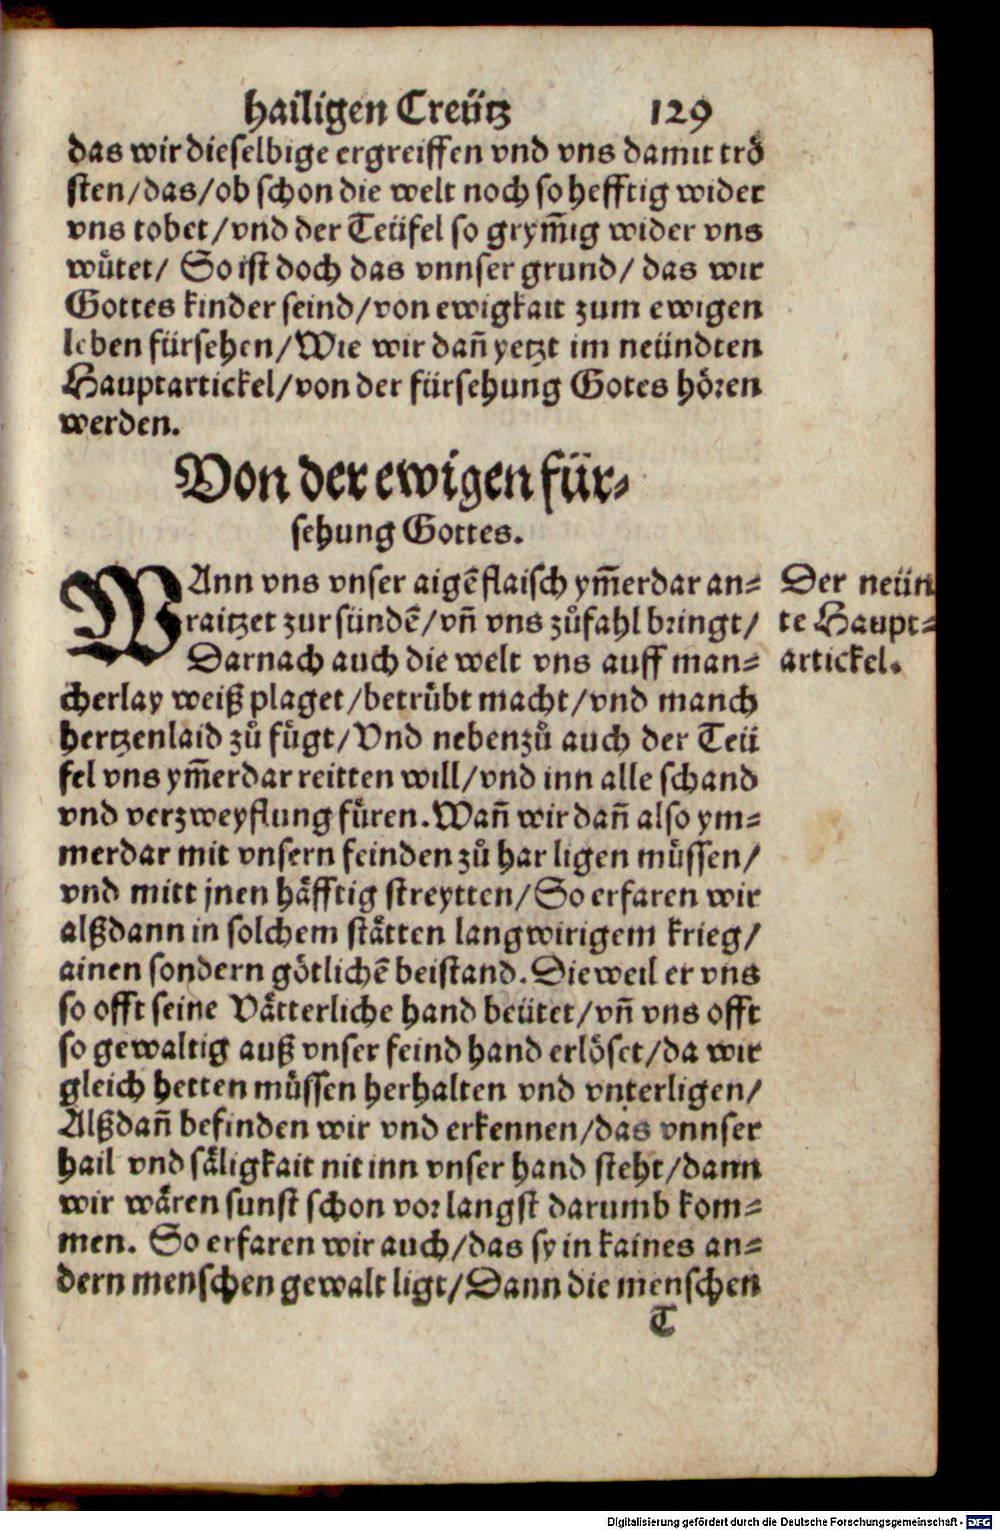 hailigen Creütz 129
das wir dieselbige ergreiffen vnd vns damit trö
sten/das/ob schon die welt noch so hefftig wider
vns tobet/vnd der Teüfel so grym̃ig wider vns
wuͤtet/ So ist doch das vnnser grund/ das wir
Gottes kinder seind/von ewigkait zum ewigen
leben fürsehen/Wie wir dañ yetzt im neündten
Hauptartickel/von der fürsehung Gotes hören
werden.
Von der ewigen für-
sehung Gottes.
WAnn vns vnser aigẽ flaisch ym̃erdar an-
raitzet zur sündẽ/vñ vns zuͦfahl bringt/
Darnach auch die welt vns auff man-
cherlay weiß plaget/betruͤbt macht/vnd manch
hertzenlaid zuͦ fuͤgt/Vnd nebenzuͦ auch der Teü
fel vns ym̃erdar reitten will/vnd inn alle schand
vnd verzweyflung fuͤren. Wañ wir dañ also ym-
merdar mit vnsern feinden zuͦ har ligen muͤssen/
vnd mitt jnen haͤfftig streytten/So erfaren wir
alßdann in solchem staͤtten langwirigem krieg/
ainen sondern goͤtlichẽ beistand. Die weil er vns
so offt seine Vaͤtterliche hand beütet/vñ vns offt
so gewaltig auß vnser feind hand erloͤset/da wir
gleich hetten muͤssen herhalten vnd vnterligen/
Alßdañ befinden wir vnd erkennen/das vnnser
hail vnd saͤligkait nit inn vnser hand steht/dann
wir waͤren sunst schon vorlangst darumb kom-
men. So erfaren wir auch/das sy in kaines an-
dern menschen gewalt ligt/Dann die menschen
T
Der neün
te Haupt-
artickel.
Digitalisierung gefördert durch die Deutsche Forschungsgemeinschaft - DFG